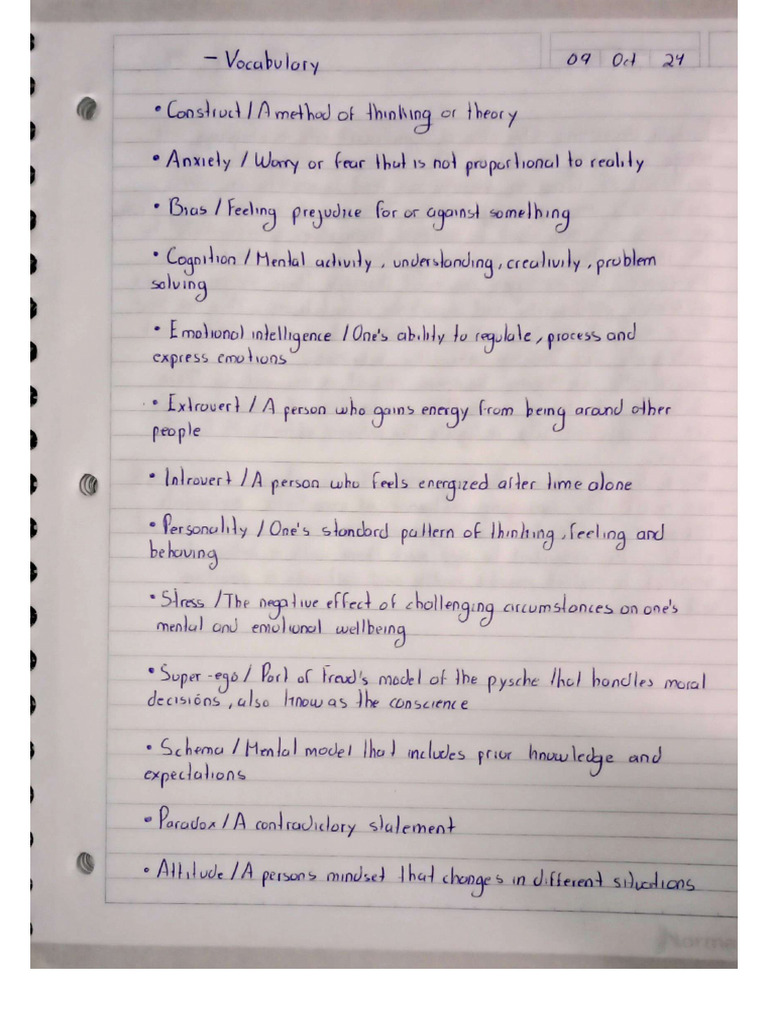 - Vocabulary
09 Oct 24
• Construct / A method of thinking or theory
• Anxiety / Worry or fear that is not proportional to reality
• Bias / Feeling prejudice for or against something
• Cognition / Mental activity, understanding, creativity, problem
solving
• Emotional intelligence / One's ability to regulate, process and
express emotions
• Extrovert / A person who gains energy from being around other
people
• Introvert / A person who feels energized after time alone
• Personality / One's standard pattern of thinking, feeling and
behaving
• Stress / The negative effect of challenging circumstances on one's
mental and emotional wellbeing
• Super-ego / Part of Freud's model of the pysche that handles moral
decisións, also know as the conscience
• Schema / Mental model that includes prior knowledge and
expectations
• Paradox / A contradictory statement
• Attitude / A persons mindset that changes in different situations